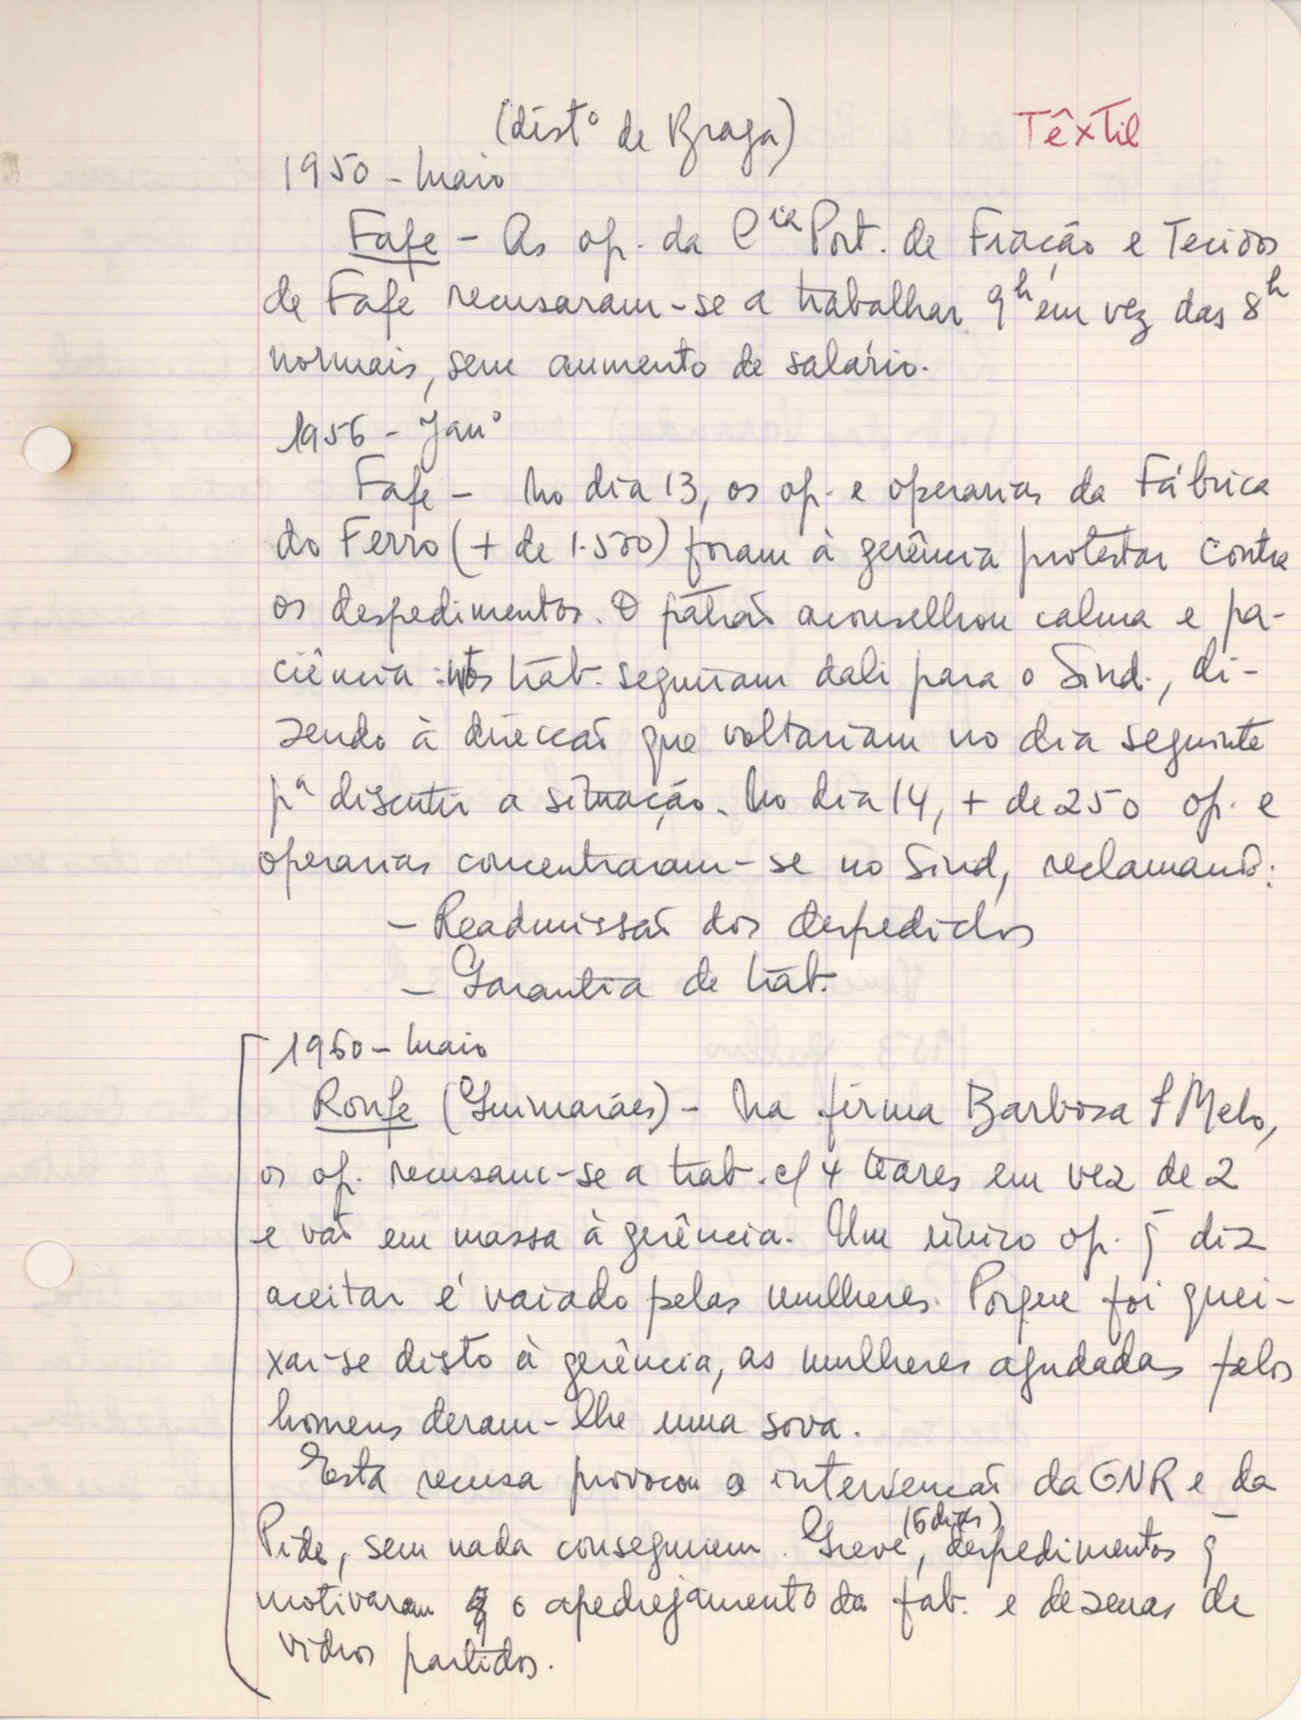 (distº de Braga) Têxtil
1950 - Maio
Fafe - As op. da Cia Port. de Fiação e Tecidos
de Fafe recusaram-se a trabalhar 9h em vez das 8h
normais, sem aumento de salário.
1956 - Janº
Fafe - No dia 13, os op. e operarias da Fábrica
do Ferro (+ de 1.500) foram à gerência protestar contra
os despedimentos. O patrão aconselhou calma e pa-
ciência: os trab. seguiram dali para o Sind., di-
zendo à direcção que voltariam no dia seguinte
pª discutir a situação. No dia 14, + de 250 op. e
operarias concentraram-se no Sind, reclamando:
- Readmissão dos despedidos
- Garantia de trab.
1960 - Maio
Ronfe (Guimarães) - Na firma Barbosa & Melo,
os op. recusam-se a trab. c/ 4 teares em vez de 2
e vão em massa à gerência. Um único op. q̄ diz
aceitar é vaiado pelas mulheres. Porque foi quei-
xar-se disto à gerência, as mulheres ajudadas pelos
homens deram-lhe uma sova.
Esta recusa provocou a intervenção da GNR e da
Pide, sem nada conseguirem. Greve (5 dias), despedimentos q̄
motivaram o apedrejamento da fab. e dezenas de
vidros partidos.